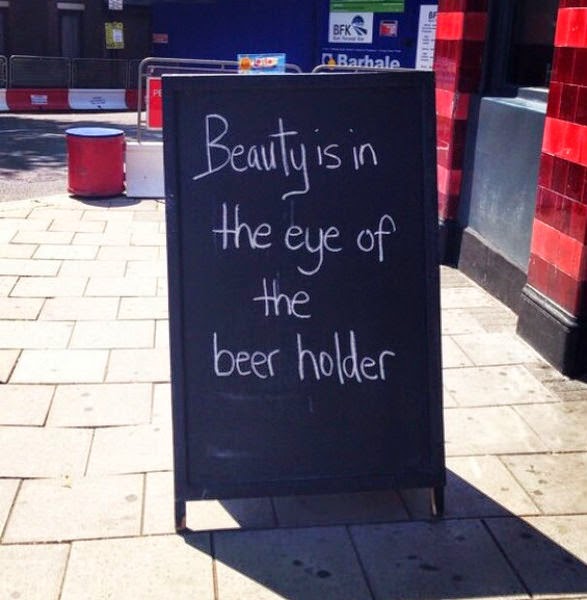 BFK
Barhale
Beauty is in
the eye of
the
beer holder